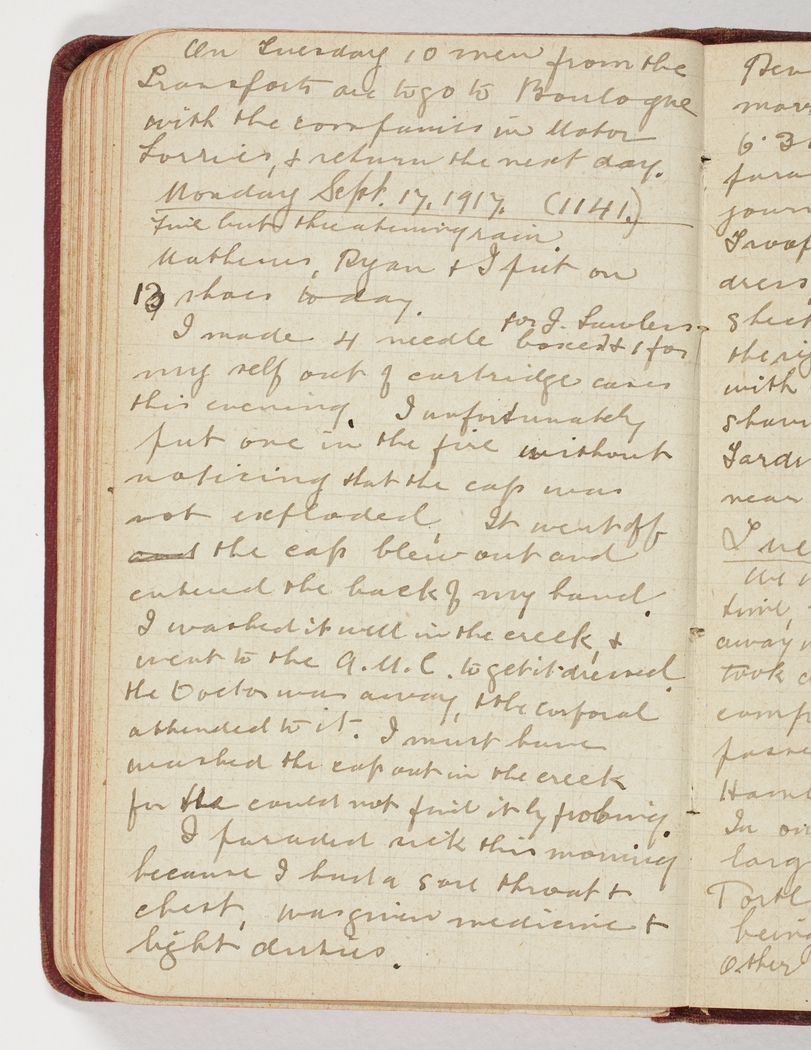 On Tuesday 10 men from the
Transports are to go to Boulogne
with the companies in Motor
Lorries, & return the next day.
Monday Sept. 17, 1917. (1141)
Fine but threatening rain.
Mathews, Ryan & I put on
13 shoes to day.
for J. Lawless
I made 4 needle boxes & 1 for
my self out of cartridge cases
this evening. I unfortunately
put one in the fire without
noticing that the cap was
not exploded. It went off
and the cap blew out and
entered the back of my hand.
I washed it well in the creek, &
went to the A.M.C. to get it dressed.
the Doctor was away, & the corporal
attended to it. I must have
washed the cap out in the creek
for the could not find it by probing.
I paraded sick this morning
because I had a sore throat &
chest, was given medicine &
light duties.
Ben
mar
6.3
para
jour
Troop
dress
sheet
the rig
with
shav
Yards
near
We
time,
away
took
comp
passe
In
larg
being
other